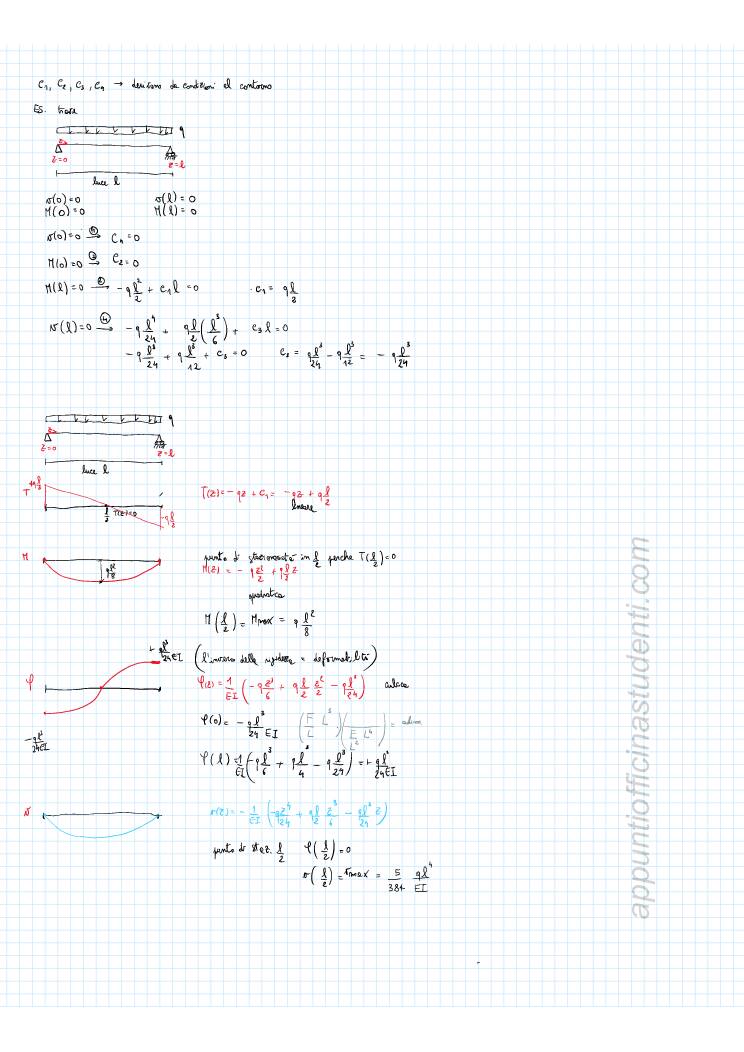 C₁, C₂, C₃, C₄ → derivano da condizioni al contorno
ES. trave
q
z
z=0
z=l
luce l
v(0)=0 v(l)=0
M(0)=0 M(l)=0
v(0)=0 →④ C₄=0
M(0)=0 →② C₂=0
M(l)=0 →② -q l²/2 + C₁l =0 · C₁= q l/2
v(l)=0 →④ -q l⁴/24 + ql/2 (l³/6) + C₃ l=0
-q l³/24 + q l³/12 + C₃ =0 C₃ = q l³/24 - q l³/12 = - q l³/24
q
z
z=0
z=l
luce l
T +q l/2
l/2 T(z)=0
-q l/2
T(z)= -qz + C₁ = -qz + q l/2
lineare
M
q l²/8
punto di stazionarietà in l/2 perché T(l/2)=0
M(z) = - q z²/2 + q l/2 z
quadratica
M(l/2) = Mmax = q l²/8
+ ql³/24EI
(l'inverso della rigidezza = deformabilità)
φ
φ(z)= 1/EI (-q z³/6 + q l/2 z²/2 - q l³/24) cubica
φ(0) = - q l³/24 EI (F/L L³) (1/(F/L² L⁴)) = adim
- ql³/24EI
φ(l) = 1/EI (-q l³/6 + q l³/4 - q l³/24) = + q l³/24EI
v
v(z)= - 1/EI (-qz⁴/24 + ql/2 z³/6 - ql³/24 z)
punto di staz. l/2 φ(l/2)=0
v(l/2) = vmax = 5/384 ql⁴/EI
appuntiofficinastudenti.com